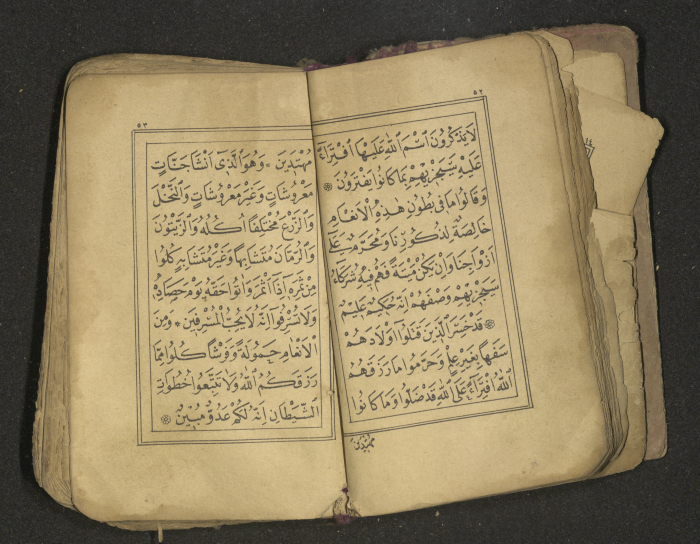 ٥٢
لَا يَذْكُرُونَ اسْمَ اللّٰهِ عَلَيْهَا افْتِرَاءً
عَلَيْهِ سَيَجْزِيهِمْ بِمَا كَانُوا يَفْتَرُونَ
وَقَالُوا مَا فِى بُطُونِ هٰذِهِ الْاَنْعَامِ
خَالِصَةٌ لِذُكُورِنَا وَمُحَرَّمٌ عَلٰٓى
اَزْوَاجِنَا وَاِنْ يَكُنْ مَيْتَةً فَهُمْ فِيهِ شُرَكَاءُ
سَيَجْزِيهِمْ وَصْفَهُمْ اِنَّهُ حَكِيمٌ عَلِيمٌ
قَدْ خَسِرَ الَّذِينَ قَتَلُوا اَوْلَادَهُمْ
سَفَهًا بِغَيْرِ عِلْمٍ وَحَرَّمُوا مَا رَزَقَهُمُ
اللّٰهُ افْتِرَاءً عَلَى اللّٰهِ قَدْ ضَلُّوا وَمَا كَانُوا
مهتدين
٥٣
مُهْتَدِينَ وَهُوَ الَّذِى اَنْشَاَ جَنَّاتٍ
مَعْرُوشَاتٍ وَغَيْرَ مَعْرُوشَاتٍ وَالنَّخْلَ
وَالزَّرْعَ مُخْتَلِفًا اُكُلُهُ وَالزَّيْتُونَ
وَالرُّمَّانَ مُتَشَابِهًا وَغَيْرَ مُتَشَابِهٍ كُلُوا
مِنْ ثَمَرِهِ اِذَا اَثْمَرَ وَاٰتُوا حَقَّهُ يَوْمَ حَصَادِهِ
وَلَا تُسْرِفُوا اِنَّهُ لَا يُحِبُّ الْمُسْرِفِينَ وَمِنَ
الْاَنْعَامِ حَمُولَةً وَفَرْشًا كُلُوا مِمَّا
رَزَقَكُمُ اللّٰهُ وَلَا تَتَّبِعُوا خُطُوَاتِ
الشَّيْطَانِ اِنَّهُ لَكُمْ عَدُوٌّ مُبِينٌ